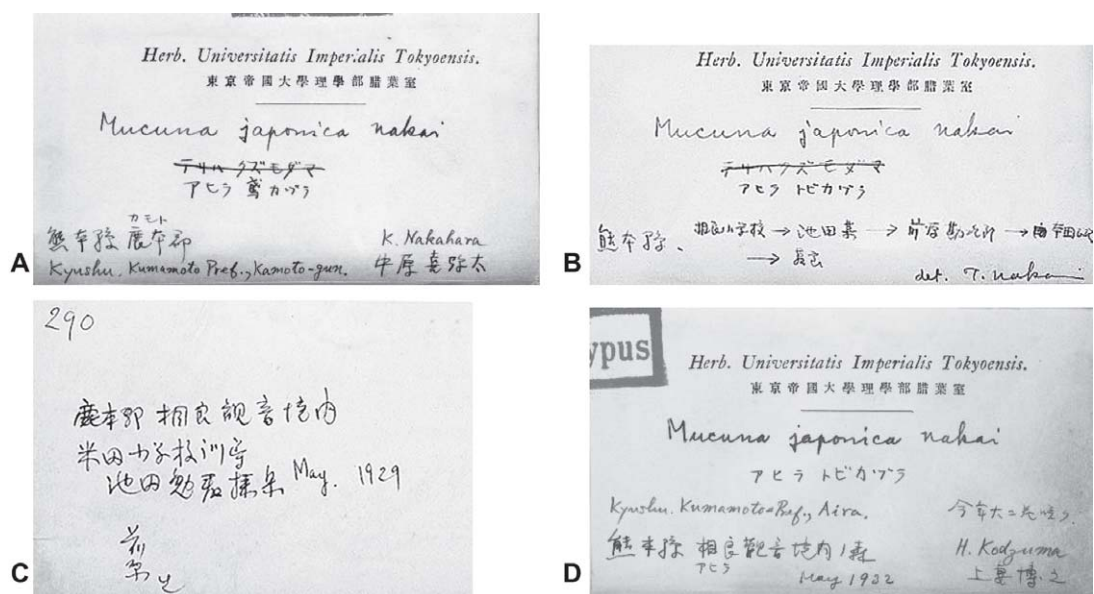 A
Herb. Universitatis Imperialis Tokyoensis.
東京帝國大學理學部腊葉室
Mucuna japonica Nakai
テリハクズモダマ
アヒラ 鳶カヅラ
カモト
熊本縣 鹿本郡
Kyushu. Kumamoto Pref., Kamoto-gun.
K. Nakahara
中原喜弥太
B
Herb. Universitatis Imperialis Tokyoensis.
東京帝國大學理學部腊葉室
Mucuna japonica Nakai
テリハクズモダマ
アヒラ トビカヅラ
熊本縣、相良小学校 → 池田 → 前原勘次郎 →
→
det. T. Nakai
C
290
鹿本郡 相良観音境内
米田小学校訓導
池田勉君採集 May. 1929
前原
D
ypus
Herb. Universitatis Imperialis Tokyoensis.
東京帝國大學理學部腊葉室
Mucuna japonica Nakai
アヒラ トビカヅラ
Kyushu. Kumamoto Pref., Aira.
熊本縣 相良観音境内ノ森
アヒラ
May 1932
今年大ニ花咲ク
H. Kodzuma
上妻博之